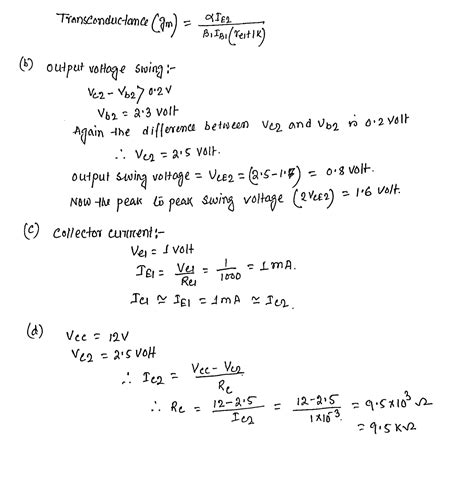 Transconductance (gm) = αIE2 / β1IB1(re1+1K)
(b) Output voltage swing :-
Vc2 - Vb2 > 0.2V
Vb2 = 2.3 volt
Again the difference between Vc2 and Vb2 is 0.2 volt
∴ Vc2 = 2.5 volt.
Output swing voltage = VCE2 = (2.5-1.7) = 0.8 volt.
Now the peak to peak swing voltage (2VCE2) = 1.6 volt.
(c) Collector current :-
Ve1 = 1 volt
IE1 = Ve1 / Re1 = 1 / 1000 = 1 mA.
Ic1 ≃ IE1 = 1mA ≃ Ic2.
(d) Vcc = 12V
Vc2 = 2.5 volt
∴ Ic2 = Vcc - Vc2 / Rc
∴ Rc = 12-2.5 / Ic2 = 12-2.5 / 1×10⁻³ = 9.5×10³ Ω
= 9.5 KΩ